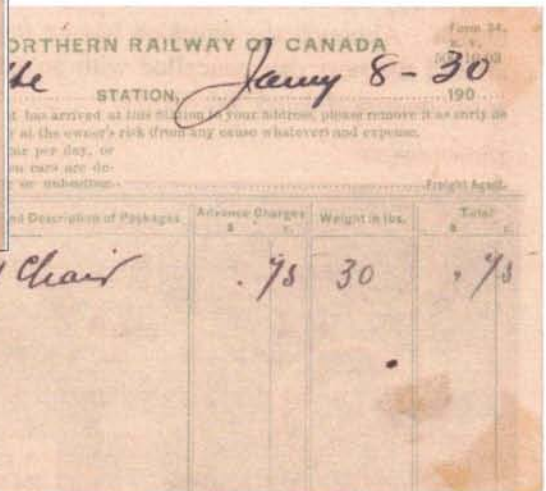 ORTHERN RAILWAY OF CANADA
Form 34.
Jany 8-30
STATION, 190
has arrived at this Station to your address, please remove it as early as
at the owner's risk (from any cause whatever) and expense.
per day, or
cars are de-
or
Freight Agent.
nd Description of Packages Advance Charges Weight in lbs. Total
$ c. $ c.
Chair .75 30 .75